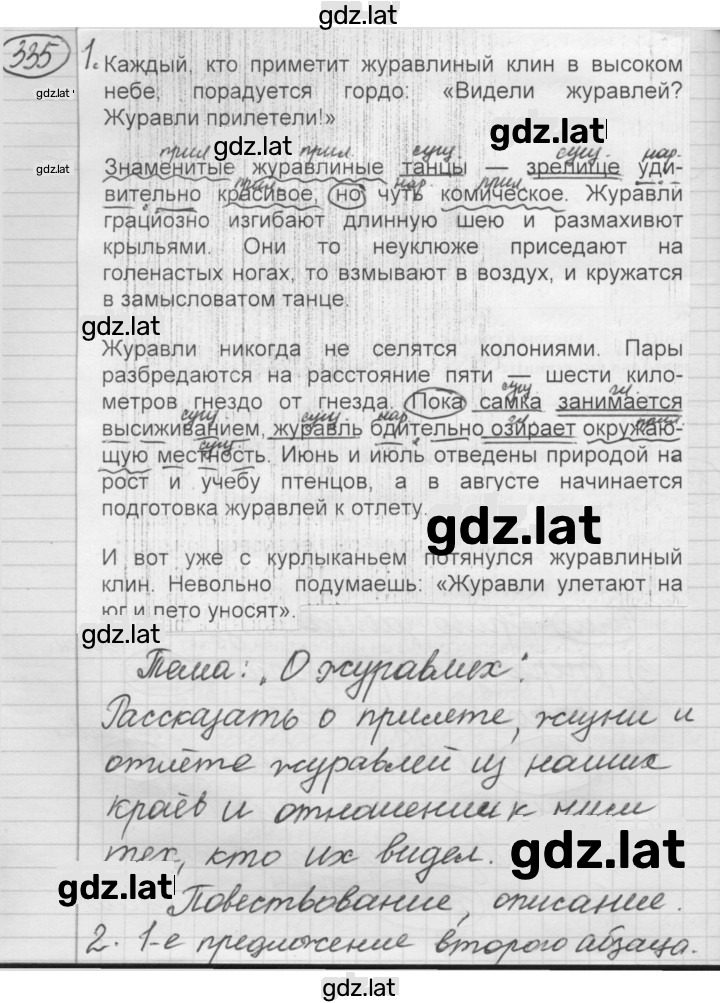 gdz.lat
335 1. Каждый, кто приметит журавлиный клин в высоком
gdz.lat небе, порадуется гордо: «Видели журавлей?
Журавли прилетели!»
gdz.lat gdz.lat
прил. прил. сущ. сущ. нар.
gdz.lat Знаменитые журавлиные танцы — зрелище уди-
прил. нар. прил.
вительно красивое, но чуть комическое. Журавли
грациозно изгибают длинную шею и размахивют
крыльями. Они то неуклюже приседают на
голенастых ногах, то взмывают в воздух, и кружатся
в замысловатом танце.
gdz.lat
Журавли никогда не селятся колониями. Пары
разбредаются на расстояние пяти — шести кило-
сущ. гл.
метров гнездо от гнезда. Пока самка занимается
сущ. сущ. нар. гл. прил.
высиживанием, журавль бдительно озирает окружаю-
сущ.
щую местность. Июнь и июль отведены природой на
рост и учебу птенцов, а в августе начинается
подготовка журавлей к отлету.
gdz.lat
И вот уже с курлыканьем потянулся журавлиный
клин. Невольно подумаешь: «Журавли улетают на
юг и лето уносят».
gdz.lat
Тема: „О журавлях".
Рассказать о прилете, жизни и
отлёте журавлей из наших
краёв и отношении к ним
тех, кто их видел. gdz.lat
gdz.lat
Повествование, описание.
2. 1-е предложение второго абзаца.
gdz.lat